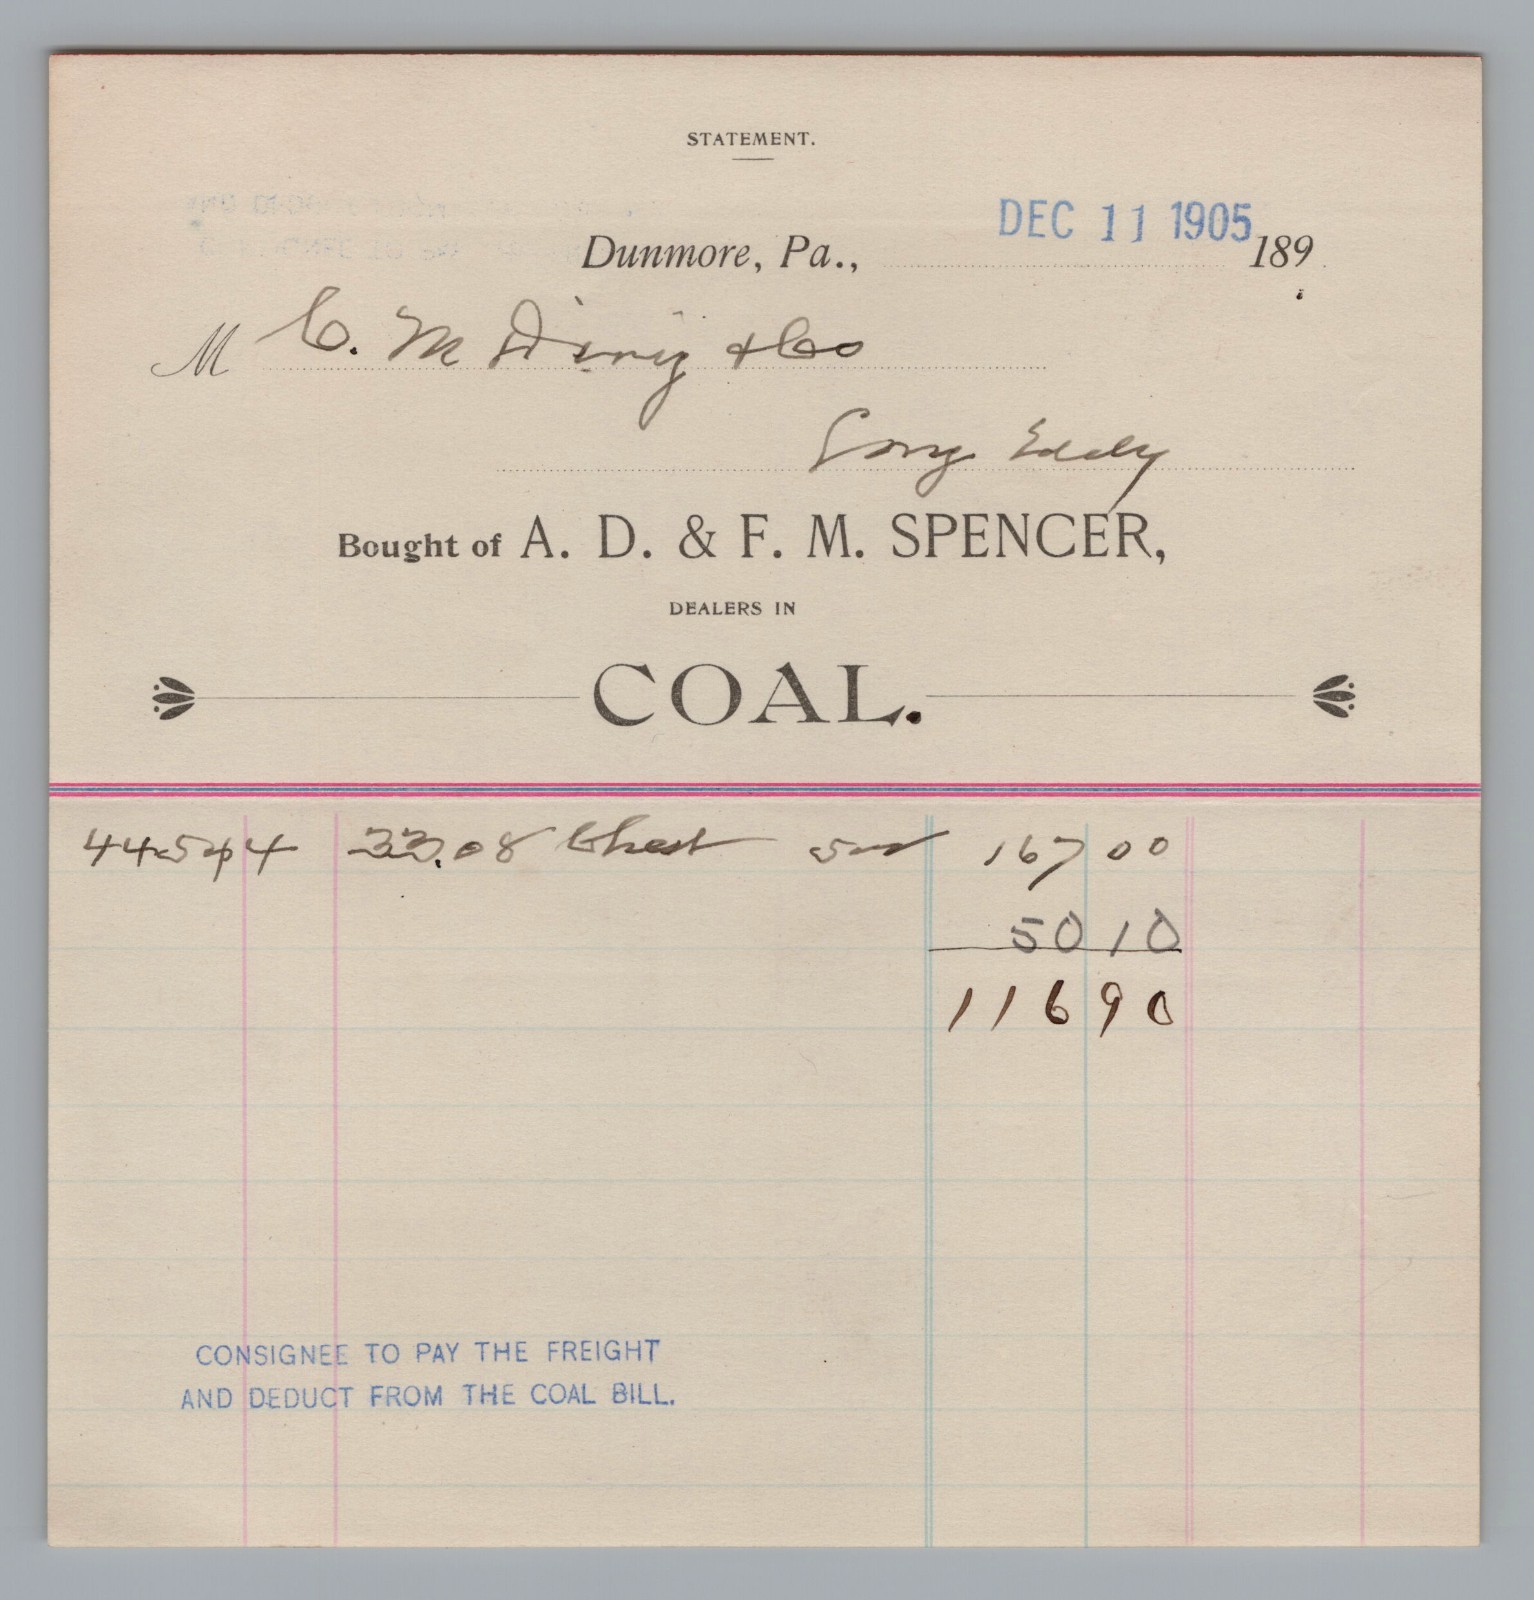 STATEMENT.
Dunmore, Pa., DEC 11 1905 189
M C. M & Co
Long Eddy
Bought of A. D. & F. M. SPENCER,
DEALERS IN
COAL.
33.08 Chest 167 00
50 10
116 90
CONSIGNEE TO PAY THE FREIGHT
AND DEDUCT FROM THE COAL BILL.